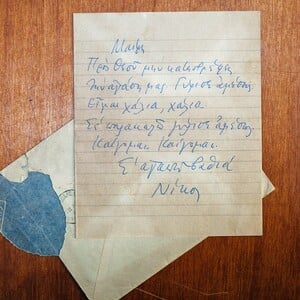 Μαίρη
Πρός Θεού μην καταστρέψεις
την αγάπη μας Γύρισε αμέσως
Είμαι χάλια, χάλια
Σέ παρακαλώ γύρισε αμέσως.
Καίγομαι Καίγομαι.
Σ' αγαπώ βαθιά
Νίκος